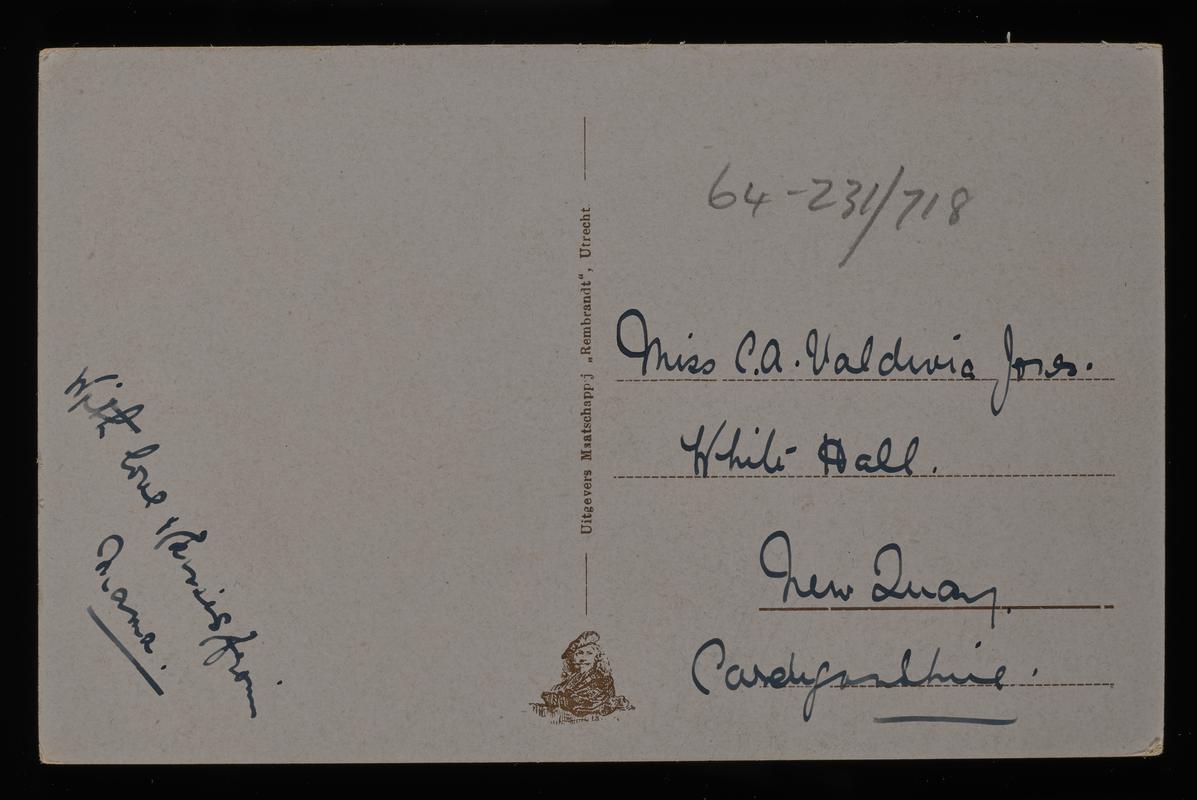 With love & kisses from
Mama.
Uitgevers Maatschappij „Rembrandt“, Utrecht
64-231/718
Miss C.A. Valdivia Jones.
White Hall.
New Quay.
Cardiganshire.